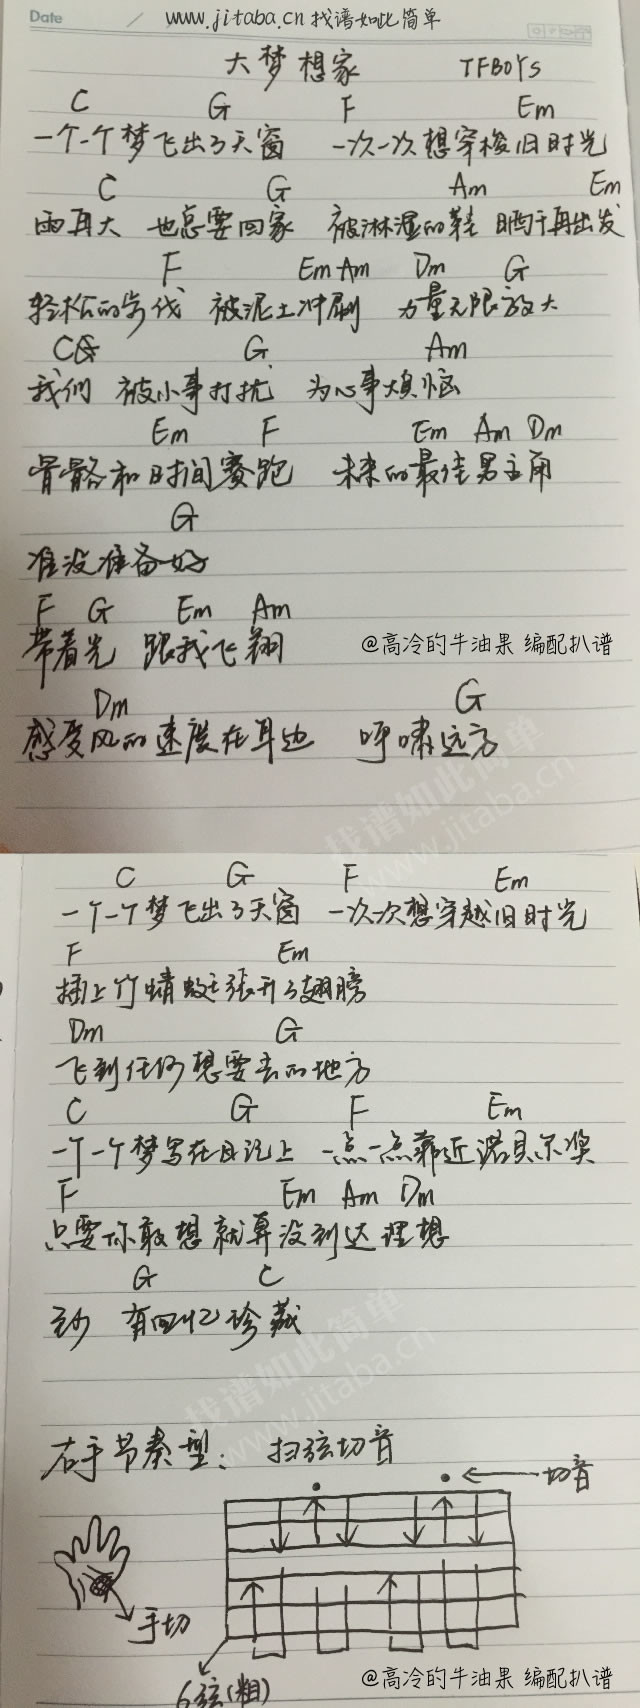 Date / www.jitaba.cn 找谱如此简单
大梦想家 TFBOYS
C G F Em
一个一个梦飞出了天窗 一次一次想穿梭旧时光
C G Am Em
雨再大 也总要回家 被淋湿的鞋 晒干再出发
F Em Am Dm G
轻松的步伐 被泥土冲刷 力量无限放大
C G Am
我们 被小事打扰 为心事烦恼
Em F Em Am Dm
骨骼和时间赛跑 未来的最佳男主角
G
准没准备好
F G Em Am
带着光 跟我飞翔
@高冷的牛油果 编配扒谱
Dm G
感受风的速度在耳边 呼啸远方
找谱如此简单
www.jitaba.cn
C G F Em
一个一个梦飞出了天窗 一次次想穿越旧时光
F Em
插上竹蜻蜓张开了翅膀
Dm G
飞到任何想要去的地方
C G F Em
一个一个梦写在日记上 一点一点靠近诺贝尔奖
F Em Am Dm
只要你敢想就算没到达理想
G C
至少 有回忆珍藏
找谱如此简单
www.jitaba.cn
右手节奏型: 扫弦切音
切音
手切
6弦(粗)
@高冷的牛油果 编配扒谱